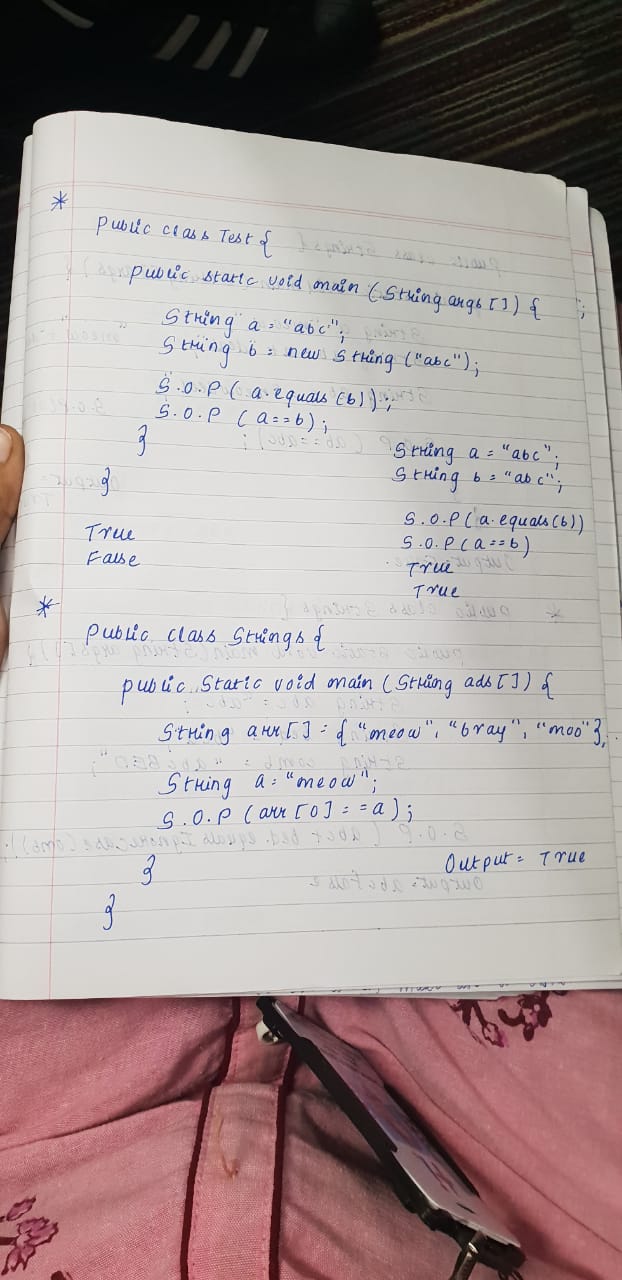 *
Public class Test {
public static void main (String args []) {
;
String a = "abc";
String b = new String ("abc");
S.O.P (a.equals(b));
S.O.P (a==b);
}
}
True
False
String a = "abc";
String b = "abc";
S.O.P (a.equals(b))
S.O.P (a==b)
True
True
*
Public class Strings {
public static void main (String ads []) {
String arr [] = { "meow", "bray", "moo" };
String a = "meow";
S.O.P (arr [0] = =a);
}
Output = True
}